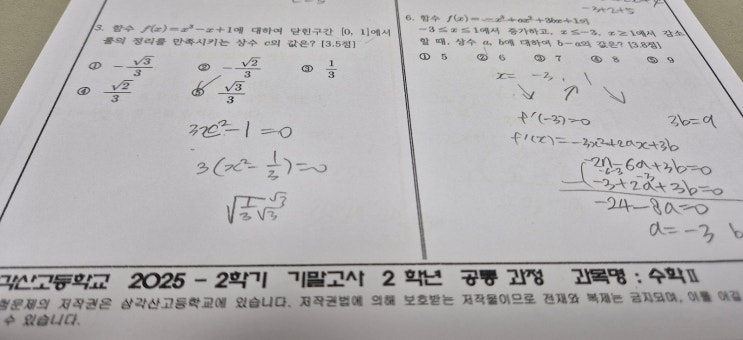 3. 함수 f(x)=x³-x+1에 대하여 닫힌구간 [0, 1]에서
롤의 정리를 만족시키는 상수 c의 값은? [3.5점]
① -√3/3 ② -√2/3 ③ 1/3
④ √2/3 ⑤ √3/3
3x²-1=0
3(x²-1/3)=0
√1/3 √3/√3
-3+2+5
6. 함수 f(x)=-x³+ax²+3bx+1이
-3≤x≤1에서 증가하고, x≤-3, x≥1에서 감소
할 때, 상수 a, b에 대하여 b-a의 값은? [3.8점]
① 5 ② 6 ③ 7 ④ 8 ⑤ 9
x= -3, 1
↘ ↗ ↘
f'(-3)=0 3b=9
f'(x)=-3x²+2ax+3b
-27-6a+3b=0
-3+2a+3b=0
-24-8a=0
a=-3 b
각산고등학교 2025 - 2학기 기말고사 2 학년 공통 과정 과목명 : 수학Ⅱ
형문제의 저작권은 삼각산고등학교에 있습니다. 저작권법에 의해 보호받는 저작물이므로 전재와 복제는 금지되며, 이를 어길
수 있습니다.